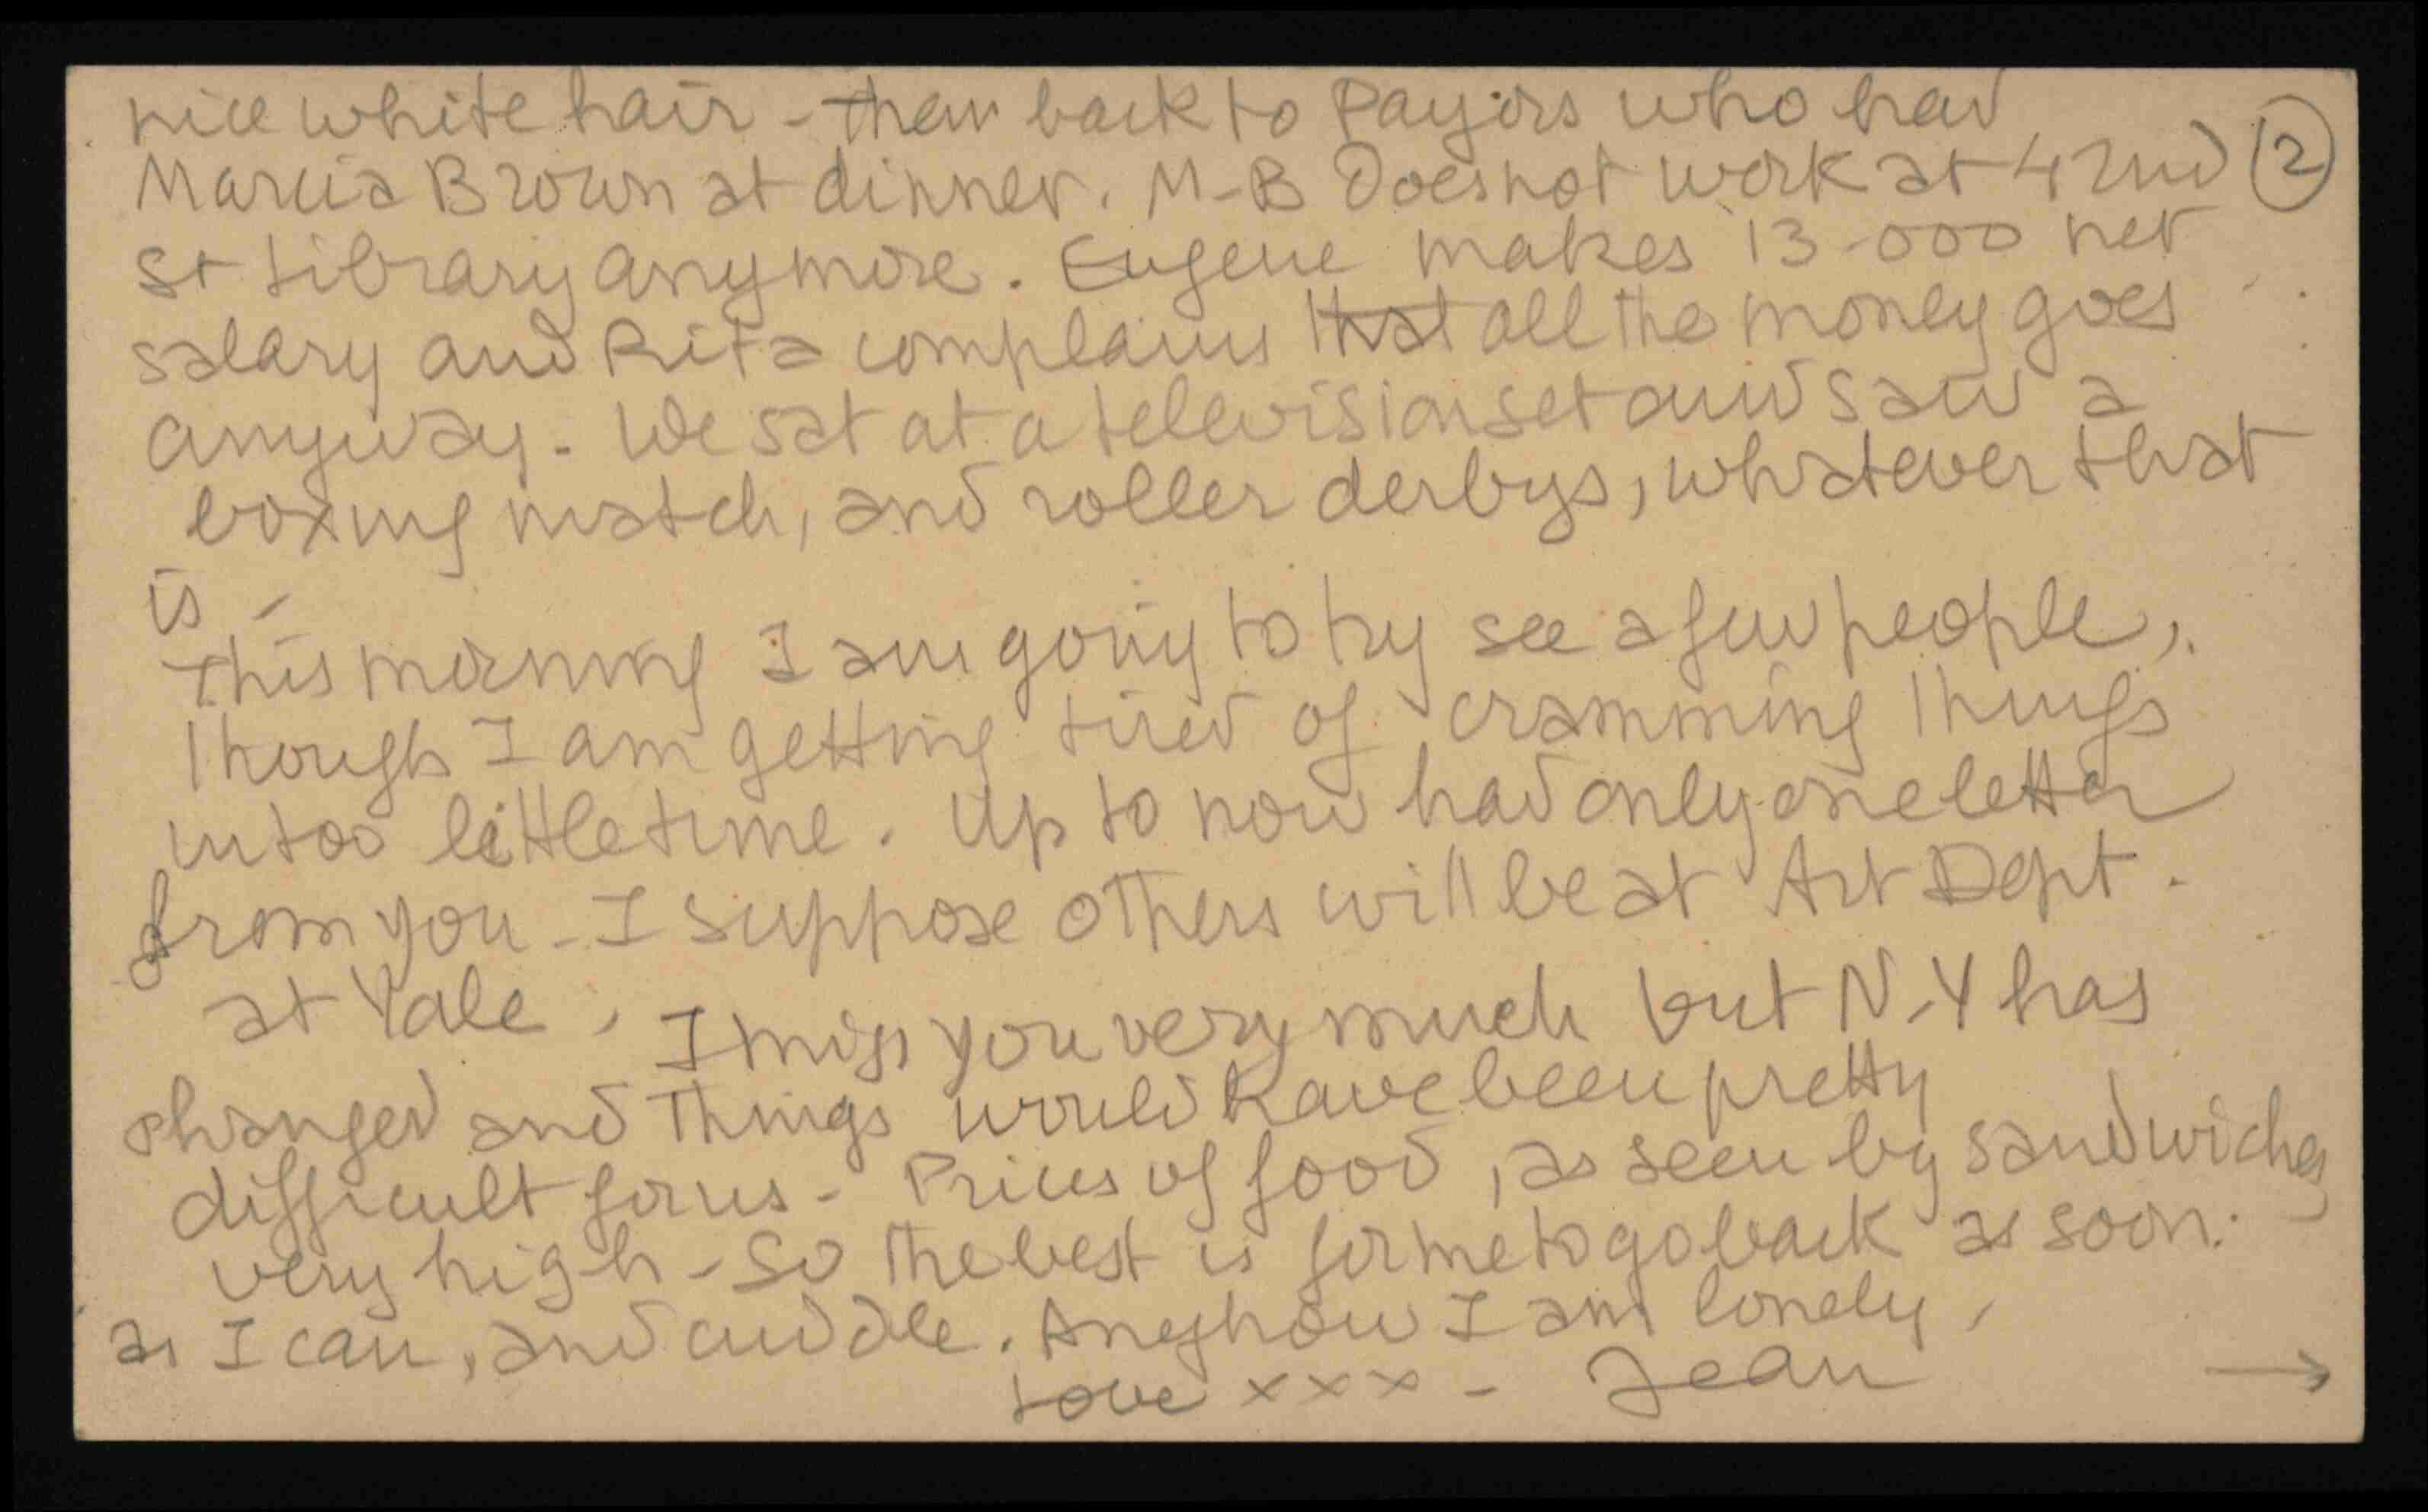 nice white hair - then back to Payors who had
Marcia Brown at dinner. M-B Does not work at 42nd ②
St Library anymore. Eugene makes 13-000 net
salary and Rita complains that all the money goes
anyway. We sat at a television set and saw a
boxing match, and roller derbys, whatever that
is -
This morning I am going to try see a few people,
Though I am getting tired of cramming Things
in too little time. Up to now had only one letter
from you - I suppose others will be at Art Dept.
at Yale. I miss you very much but N.Y has
changed and Things would have been pretty
difficult for us - Prices of food, as seen by sandwiches
very high - So The best is for me to go back as soon.
as I can, and cuddle. Anyhow I am lonely.
Love x x x - Jean →